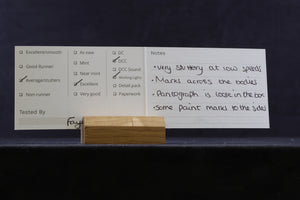 Excellent/smooth
Good Runner
Average/stuttery
Non-runner
Tested By
As new
Mint
Near mint
Excellent
Very good
DC
DCC
DCC Sound
Working Lights
Detail pack
Paperwork
Notes
-Very stuttery at low speeds
-Marks across the bodies
-Pantograph is loose in the box
-some paint marks to the sides